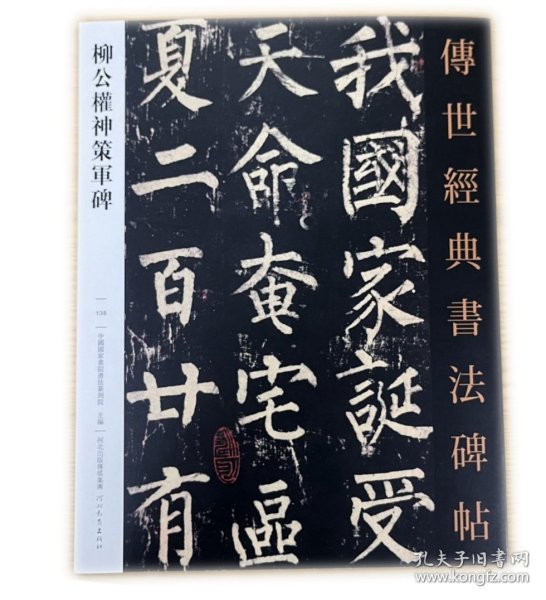 傳世經典書法碑帖
我國家誕受
天命奄宅區
夏二百廿有
柳公權神策軍碑
138
中國國家畫院書法篆刻院 主編
河北出版傳媒集團 河北教育出版社
孔夫子旧书网
www.kongfz.com